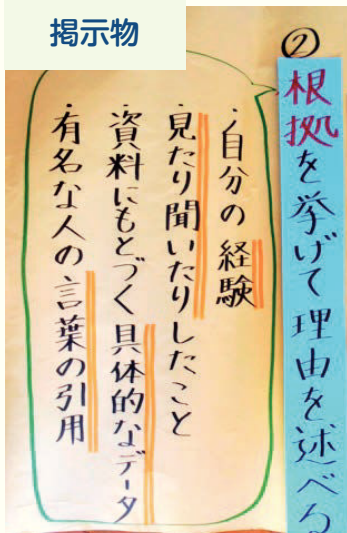 掲示物
②
根拠を挙げて理由を述べる
・自分の経験
・見たり聞いたりしたこと
・資料にもとづく具体的なデータ
・有名な人の言葉の引用